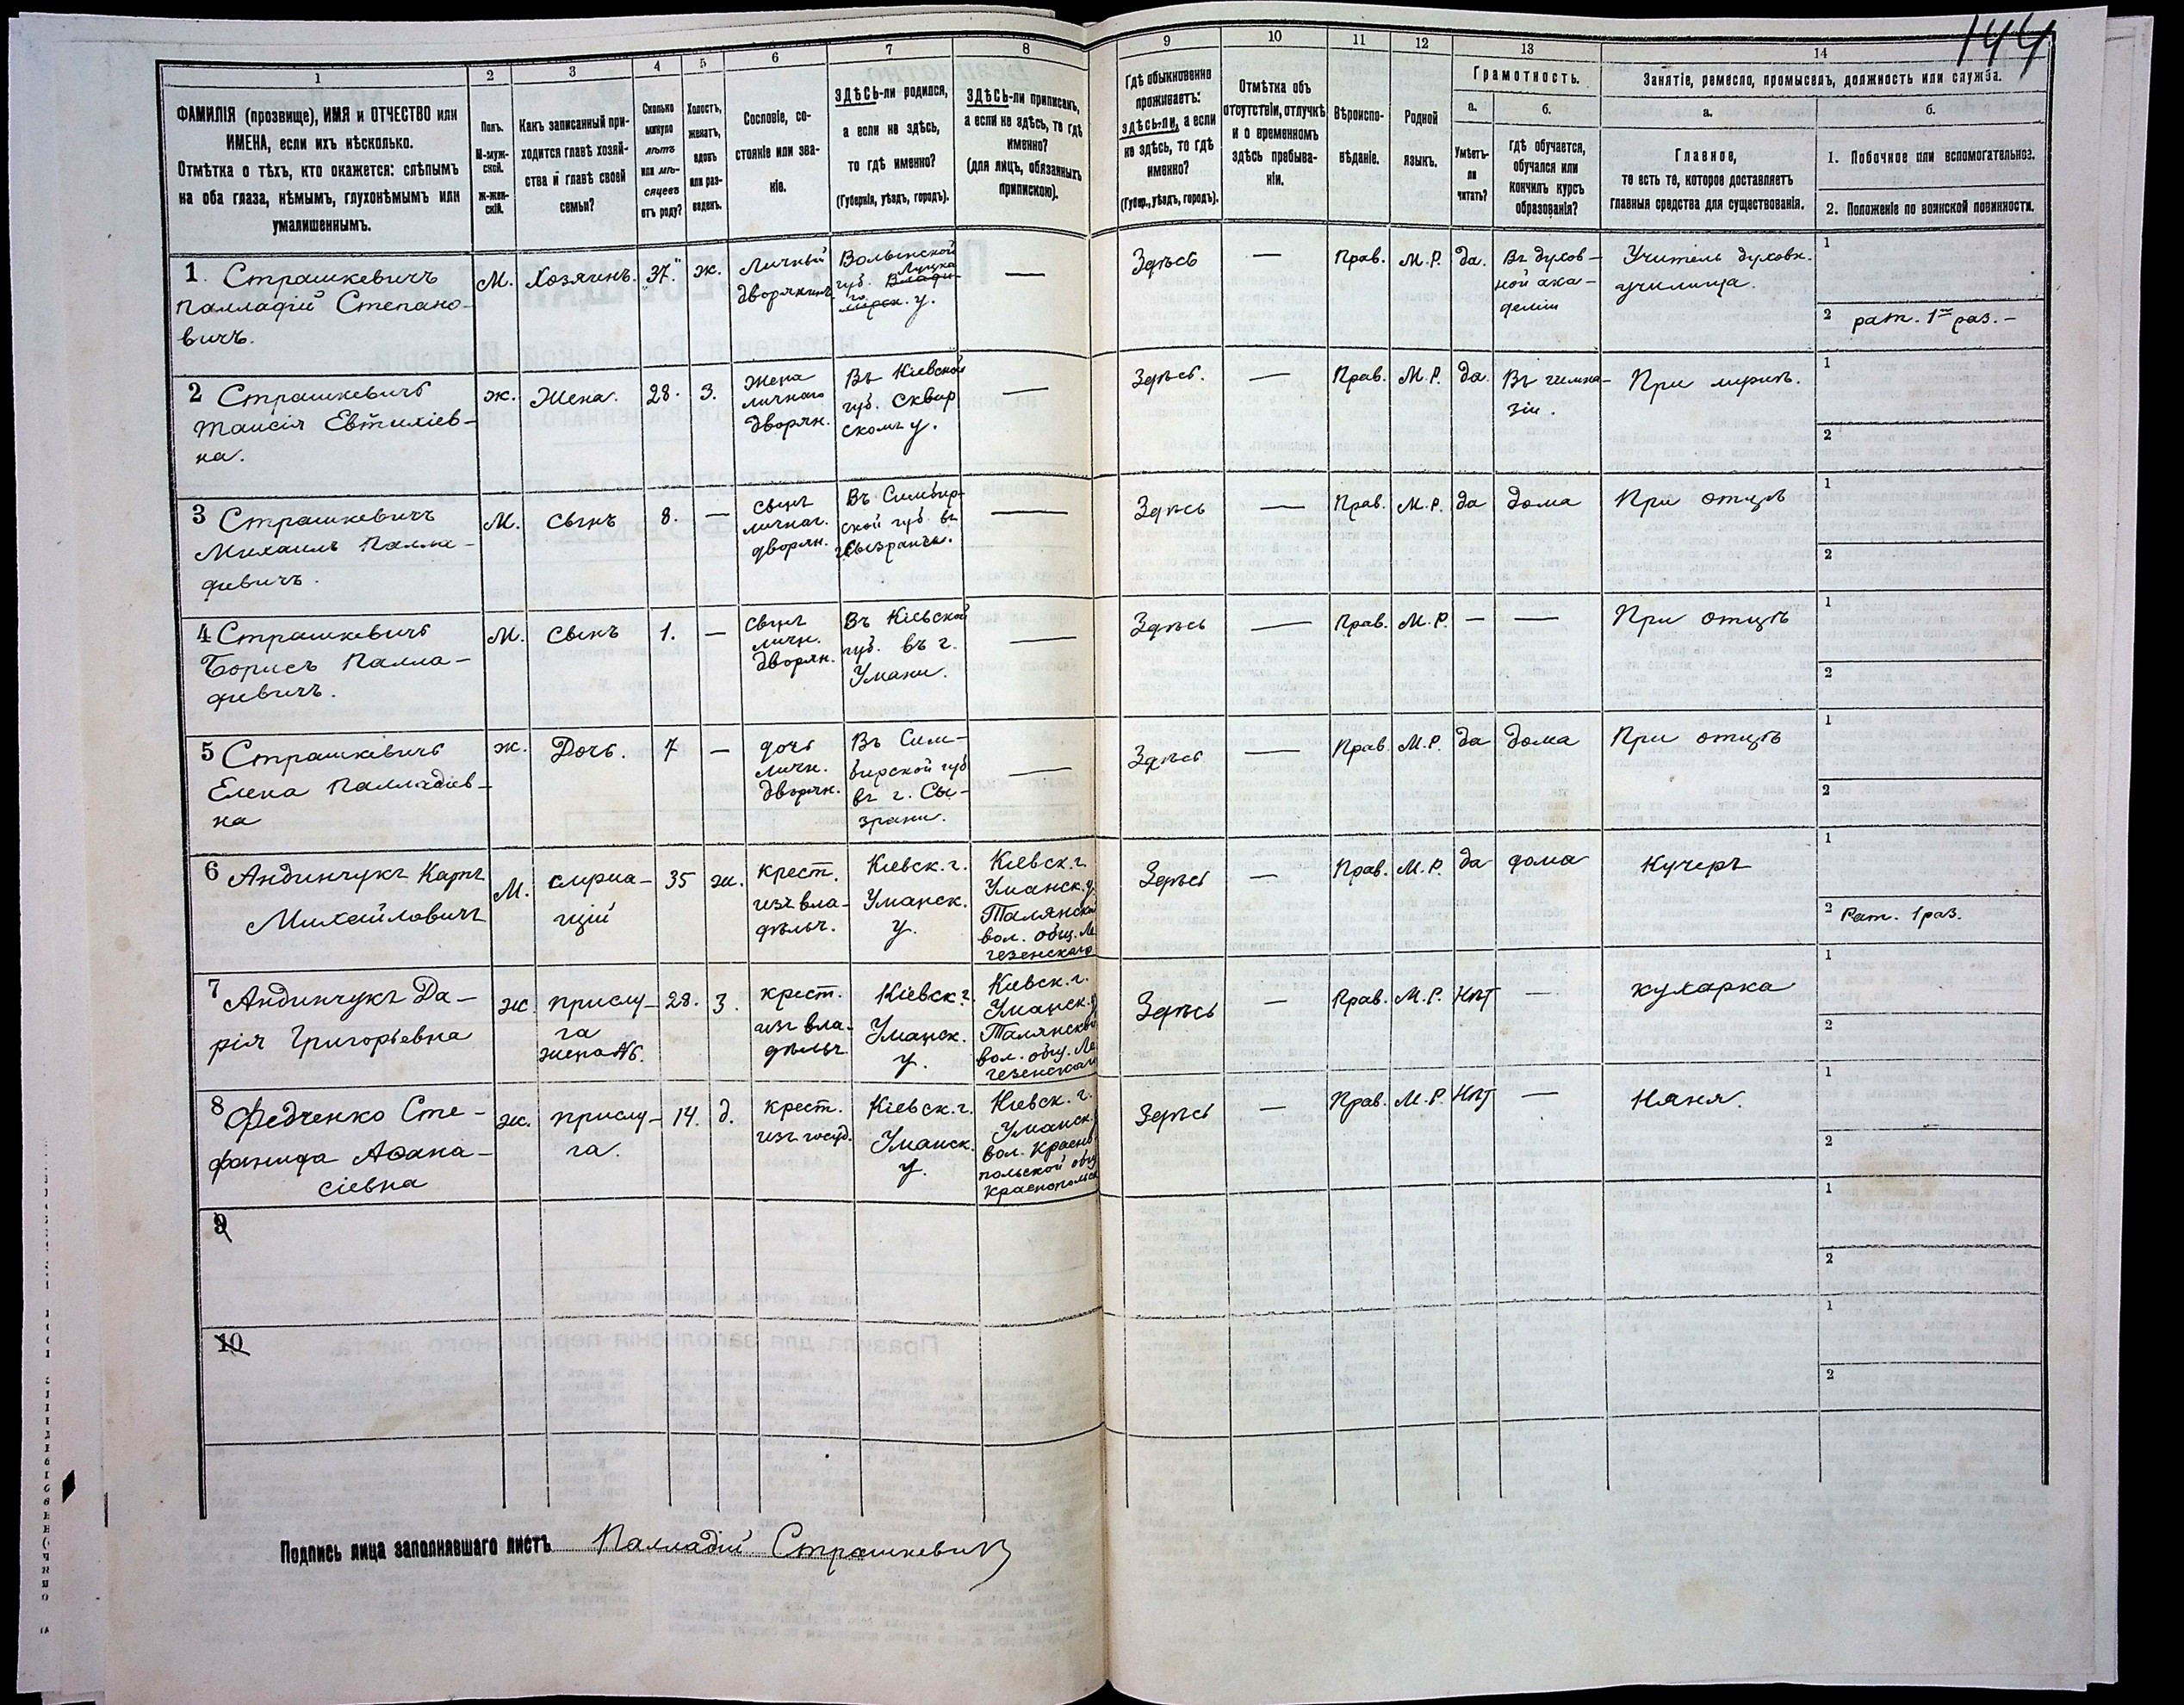 144
1
2
3
4
5
6
7
8
9
10
11
12
13
14
ФАМИЛІЯ (прозвище), ИМЯ и ОТЧЕСТВО или
ИМЕНА, если ихъ нѣсколько.
Отмѣтка о тѣхъ, кто окажется: слѣпымъ
на оба глаза, нѣмымъ, глухонѣмымъ или
умалишеннымъ.
Полъ.
М-муж-
ской.
Ж-жен-
скій.
Какъ записанный при-
ходится главѣ хозяй-
ства и главѣ своей
семьи?
Сколько
минуло
лѣтъ
или мѣ-
сяцевъ
отъ роду?
Холостъ,
женатъ,
вдовъ
или раз-
веденъ.
Сословіе, со-
стояніе или зва-
ніе.
ЗДѢСЬ-ли родился,
а если не здѣсь,
то гдѣ именно?
(Губернія, уѣздъ, городъ).
ЗДѢСЬ-ли приписанъ,
а если не здѣсь, то гдѣ
именно?
(для лицъ, обязанныхъ
припискою).
Гдѣ обыкновенно
проживаетъ:
здѣсь-ли, а если
не здѣсь, то гдѣ
именно?
(Губер., уѣздъ, городъ).
Отмѣтка объ
отсутствіи, отлучкѣ
и о временномъ
здѣсь пребыва-
ніи.
Вѣроиспо-
вѣданіе.
Родной
языкъ.
Грамотность.
а.
Умѣетъ-
ли
читать?
б.
гдѣ обучается,
обучался или
кончилъ курсъ
образованія?
Занятіе, ремесло, промыселъ, должность или служба.
а.
Главное,
то есть то, которое доставляетъ
главныя средства для существованія.
б.
1. Побочное или вспомогательное.
2. Положеніе по воинской повинности.
1 Страшкевичъ
Палладій Степано-
вичъ.
М.
Хозяинъ.
37.
ж.
Личный
дворянинъ
Волынской
губ. Луцка
го у.
—
Здѣсь
—
Прав.
М.Р.
да.
Въ духов-
ной ака-
деміи
Учитель духовн.
училища.
1
2 рат. 1го раз. -
2 Страшкевичъ
Таисія Евтихіев-
на.
ж.
Жена.
28.
З.
Жена
личнаго
дворян.
Въ Кіевской
губ. Сквир
скомъ у.
—
Здѣсь.
—
Прав.
М.Р.
да.
Въ гимна-
зіи.
При мужѣ.
1
2
3 Страшкевичъ
Михаилъ Палла-
диевичъ.
М.
Сынъ
8.
—
сынъ
личнаг.
дворян.
Въ Симбир-
ской губ. въ
г. Сызрань.
—
Здѣсь
—
Прав.
М.Р.
да
дома
При отцѣ
1
2
4 Страшкевичъ
Борисъ Палла-
диевичъ.
М.
Сынъ
1.
—
сынъ
личн.
дворян.
Въ Кіевской
губ. въ г.
Умани.
—
Здѣсь
—
Прав.
М.Р.
—
—
При отцѣ
1
2
5 Страшкевичъ
Елена Палладиев-
на
ж.
Дочь.
7
—
дочь
личн.
дворян.
Въ Сим-
бирской губ
въ г. Сы-
зрани.
—
Здѣсь
—
Прав.
М.Р.
да
дома
При отцѣ
1
2
6 Андинчукъ Карпъ
Михайловичъ
М.
служа-
щій
35
ж.
крест.
изъ вла-
дѣльч.
Кіевск. г.
Уманск.
у.
Кіевск. г.
Уманск. у.
Талянской
вол. общ. Ле
гезенскаго
Здѣсь
—
Прав.
М.Р.
да
дома
Кучеръ
1
2 Рат. 1 раз.
7 Андинчукъ Да-
рія Григорьевна
ж.
прислу-
га
жена №6.
28.
З.
крест.
изъ вла-
дѣльч.
Кіевск. г.
Уманск.
у.
Кіевск. г.
Уманск. у
Талянской
вол. общ. Ле
гезенскаго
Здѣсь
—
Прав.
М.Р.
Нѣт
—
кухарка
1
2
8 Федченко Сте-
фанида Аѳана-
сіевна
ж.
прислу-
га.
14.
д.
крест.
изъ госуд.
Кіевск. г.
Уманск.
у.
Кіевск. г.
Уманск.
вол. Красно-
польской общ
Краснопольск
Здѣсь
—
Прав.
М.Р.
Нѣт
—
Няня.
1
2
9
1
2
10
1
2
Подпись лица заполнявшаго листъ Палладій Страшкевичъ